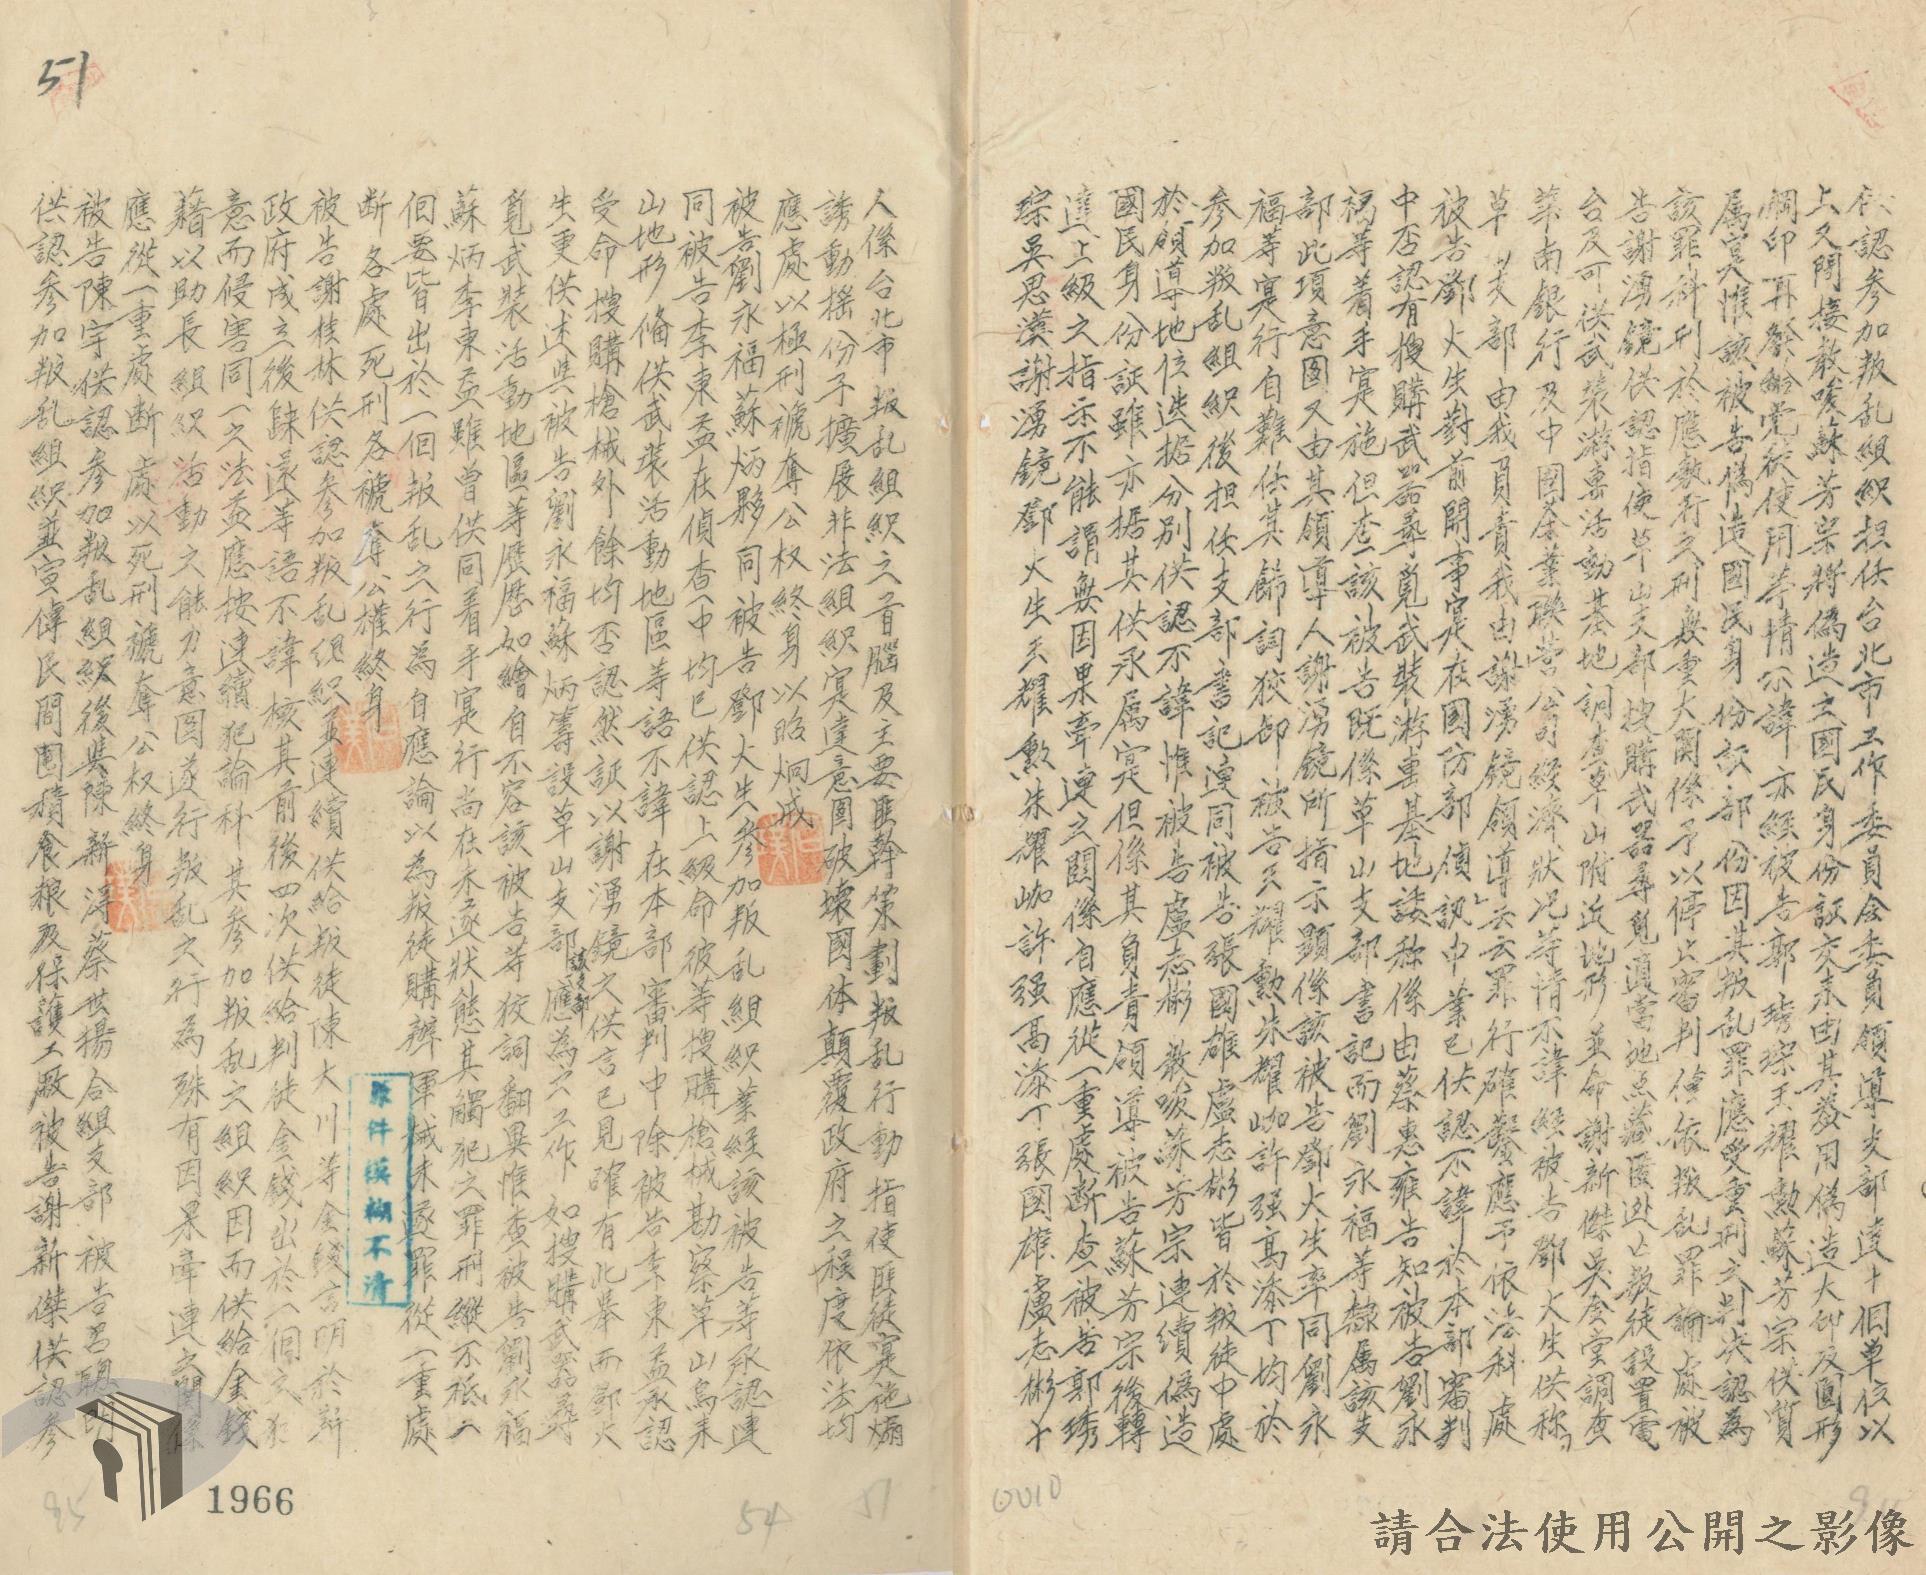 供認參加叛乱組織担任台北市工作委員会委員領導支部達十個單位以
上又間接教唆蘇芳宗將偽造之國民身份証交未由其蓋用偽造大印及圓形
鋼印再發給党徒使用等情不諱亦經被告郭琇琮王耀勲蘇芳宗供質
属寔惟該被告偽造國民身份証部份因其叛乱罪應受重刑之判决認為
該罪科刑於應執行之刑無重大関係予以停止審判僅依叛乱罪論處被
告謝湧鏡供認指使草山支部搜購武器尋覓適當地点藏匿逃亡叛徒設置電
台及可供武装游擊活動基地調查草山附近地形並命謝新傑吳金堂調查
華南銀行及中國茶業聯营公司經濟狀况等情不諱經被告鄧火生供称「
草山支部由我負責我由謝湧鏡領導」云云罪行確鑿應予依法科處
被告鄧火生對前開事寔在國防部偵訊中業已伏認不諱於本部審判
中否認有搜購武器尋覓武裝游擊基地諉称係由蔡惠雍告知被告劉永
福等着手寔施但查該被告既係草山支部書記而劉永福等隸属該支
部此項意图又由其領導人謝湧鏡所指示顯係該被告鄧火生率同劉永
福等寔行自難任其飾詞狡卸被告王耀勲朱耀珈許强高添丁均於
參加叛乱組織後担任支部書記連同被告張國雄盧志彬皆於叛徒中處
於領導地位迭据分別供認不諱惟被告盧志彬教唆蘇芳宗連續偽造
國民身份証雖亦据其供承属寔但係其負責領導被告蘇芳宗後轉
達上級之指示不能謂無因果牽連之関係自應從一重處断查被告郭琇
琮吳思漢謝湧鏡鄧火生王耀勲朱耀珈許强高添丁張國雄盧志彬十
人係台北市叛乱組織之首腦及主要匪幹策劃叛乱行動指使匪徒寔施煽
誘動搖份子擴展非法組織寔達意图破壞國体顛覆政府之程度依法均
應處以極刑褫奪公权終身以昭炯戒
被告劉永福蘇炳夥同被告鄧火生參加叛乱組織業經該被告等承認連
同被告李東益在偵查中均已供認上級命彼等搜購槍械勘察草山烏来
山地形俻供武裝活動地區等語不諱在本部審判中除被告李東益承認
受命搜購槍械外餘均否認然証以謝湧鏡之供言已見確有此舉而鄧火
生更供述與被告劉永福蘇炳籌設草山支部該支部應為之工作如搜購武器尋
覓武裝活動地區等歷歷如繪自不容該被告等狡詞翻異惟查被告劉永福
蘇炳李東益雖曾供同着手寔行尚在未遂狀態其觸犯之罪刑縱不祗一
但要皆出於一個叛乱之行為自應論以為叛徒購辦軍械未遂罪從一重處
断各處死刑各褫奪公權終身
被告謝桂林供認參加叛乱組織並連續供給叛徒陳大川等金錢言明於新
政府成立後歸還等語不諱核其前後四次供給判徒金錢出於一個之犯
意而侵害同一之法益應按連續犯論科其參加叛乱之組織因而供給金錢
藉以助長組織活動之能力意图遂行叛乱之行為殊有因果牽連之関係
應從一重處断處以死刑褫奪公权終身
被告陳宇供認參加叛乱組織後與陳新淂蔡世揚合組支部被告呂聰明
供認參加叛乱組織並宣傳民間囤積食粮及保護工廠被告謝新傑供認參
51
原件模糊不清
1966
85
54
51
0010
請合法使用公開之影像